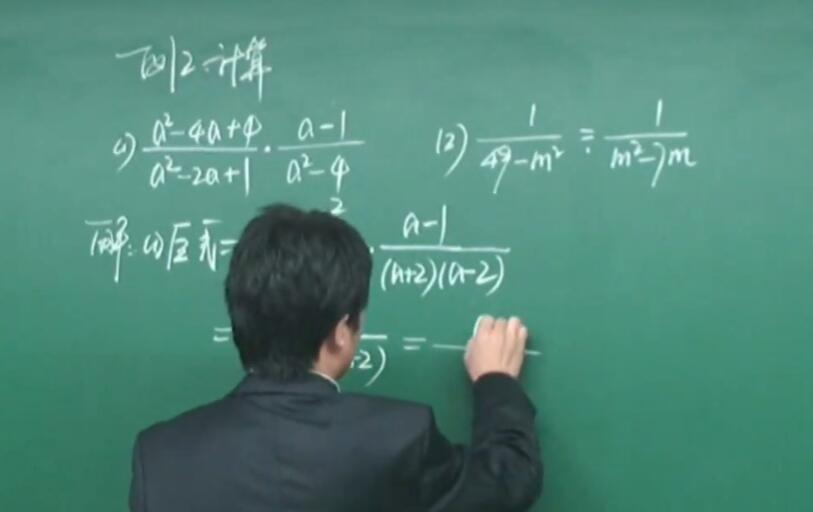 例2.计算
(1) (a²-4a+4)/(a²-2a+1) · (a-1)/(a²-4) (2) 1/(49-m²) ÷ 1/(m²-7m)
解:(1)原式= 2 · (a-1)/((a+2)(a-2))
= 2) =